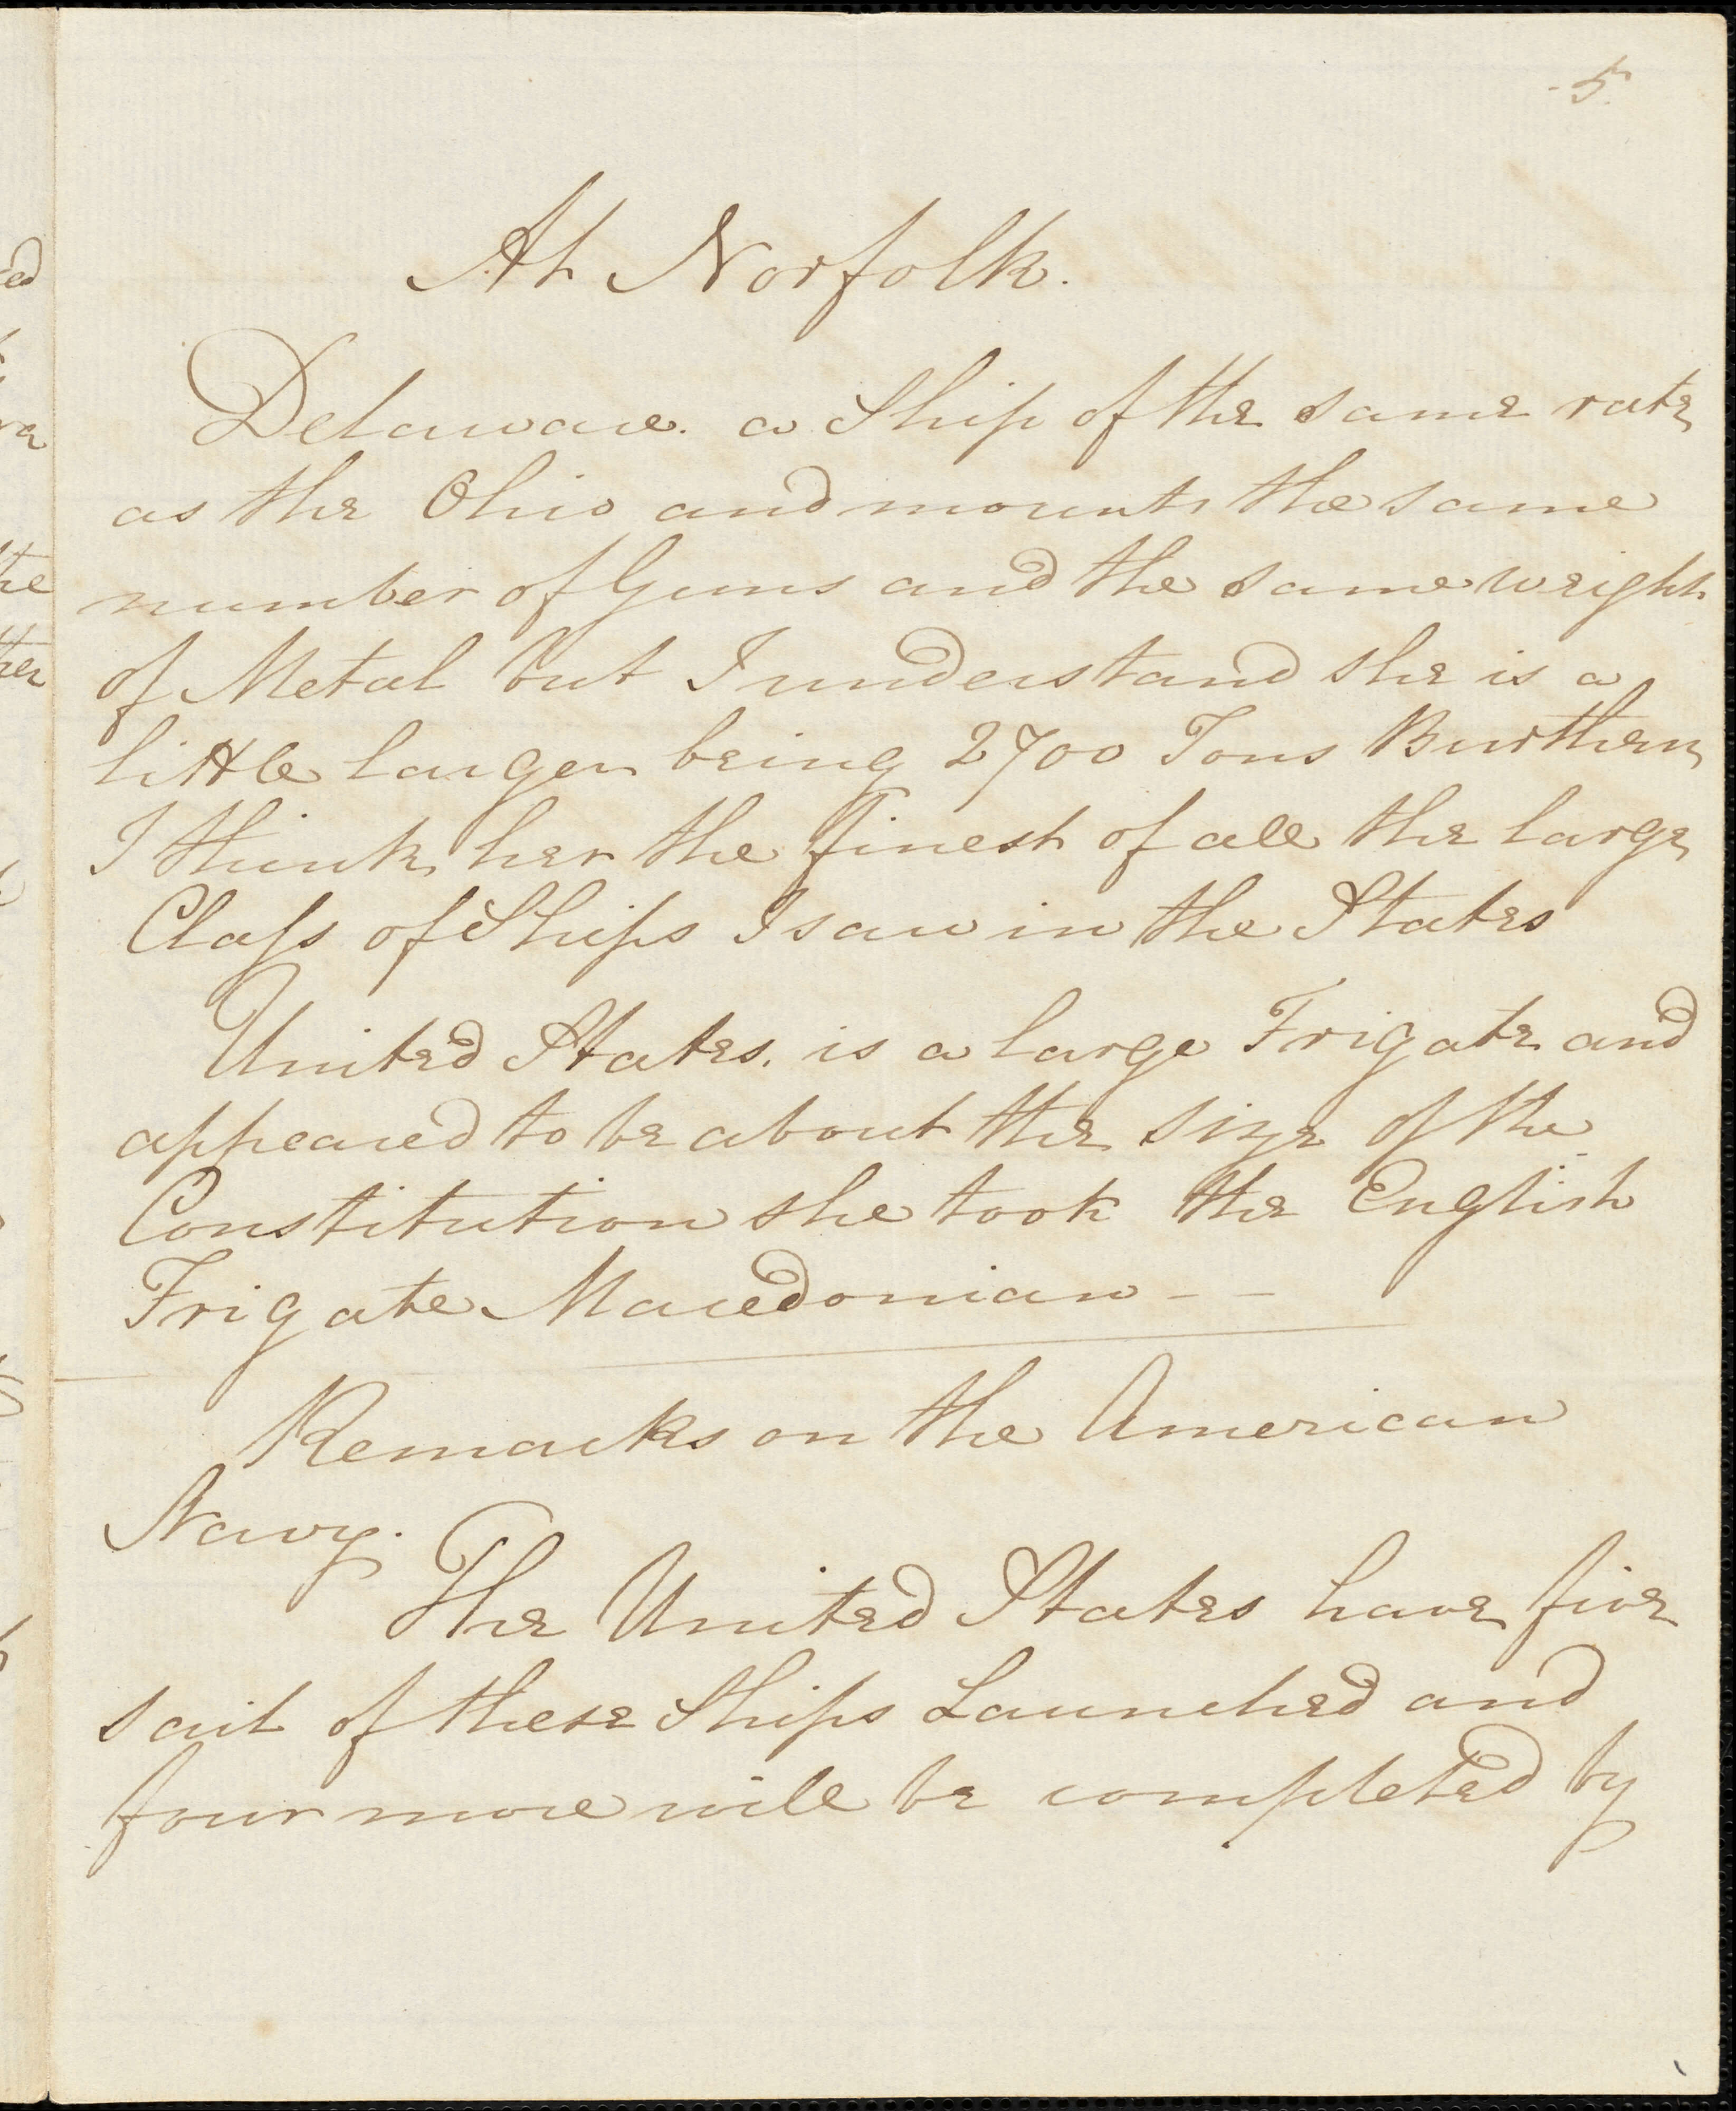 5
At Norfolk.
Delaware. a Ship of the same rate
as the Ohio and mounts the same
number of Guns and the same weight
of Metal but I understand she is a
little larger being 2700 Tons Burthen
I think her the finest of all the large
Claſs of Ships I saw in the States
United States. is a large Frigate and
appeared to be about the size of the
Constitution she took the English
Frigate Macedonian - -
Remarks on the American
Navy.
The United States have five
sail of these Ships Launched and
four more will be completed by